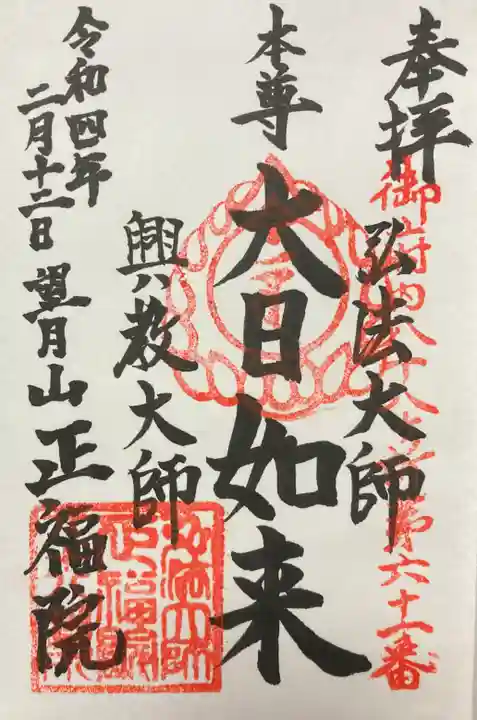 奉拝
御府内八十八ヶ所第六十一番
弘法大師
本尊
大日如来
興教大師
令和四年
二月十三日
望月山正福院